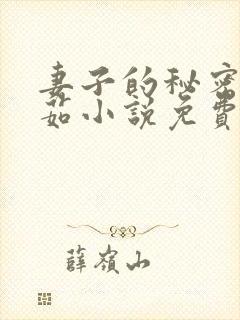 妻子的秘密
茹小說免費
薛嶺山